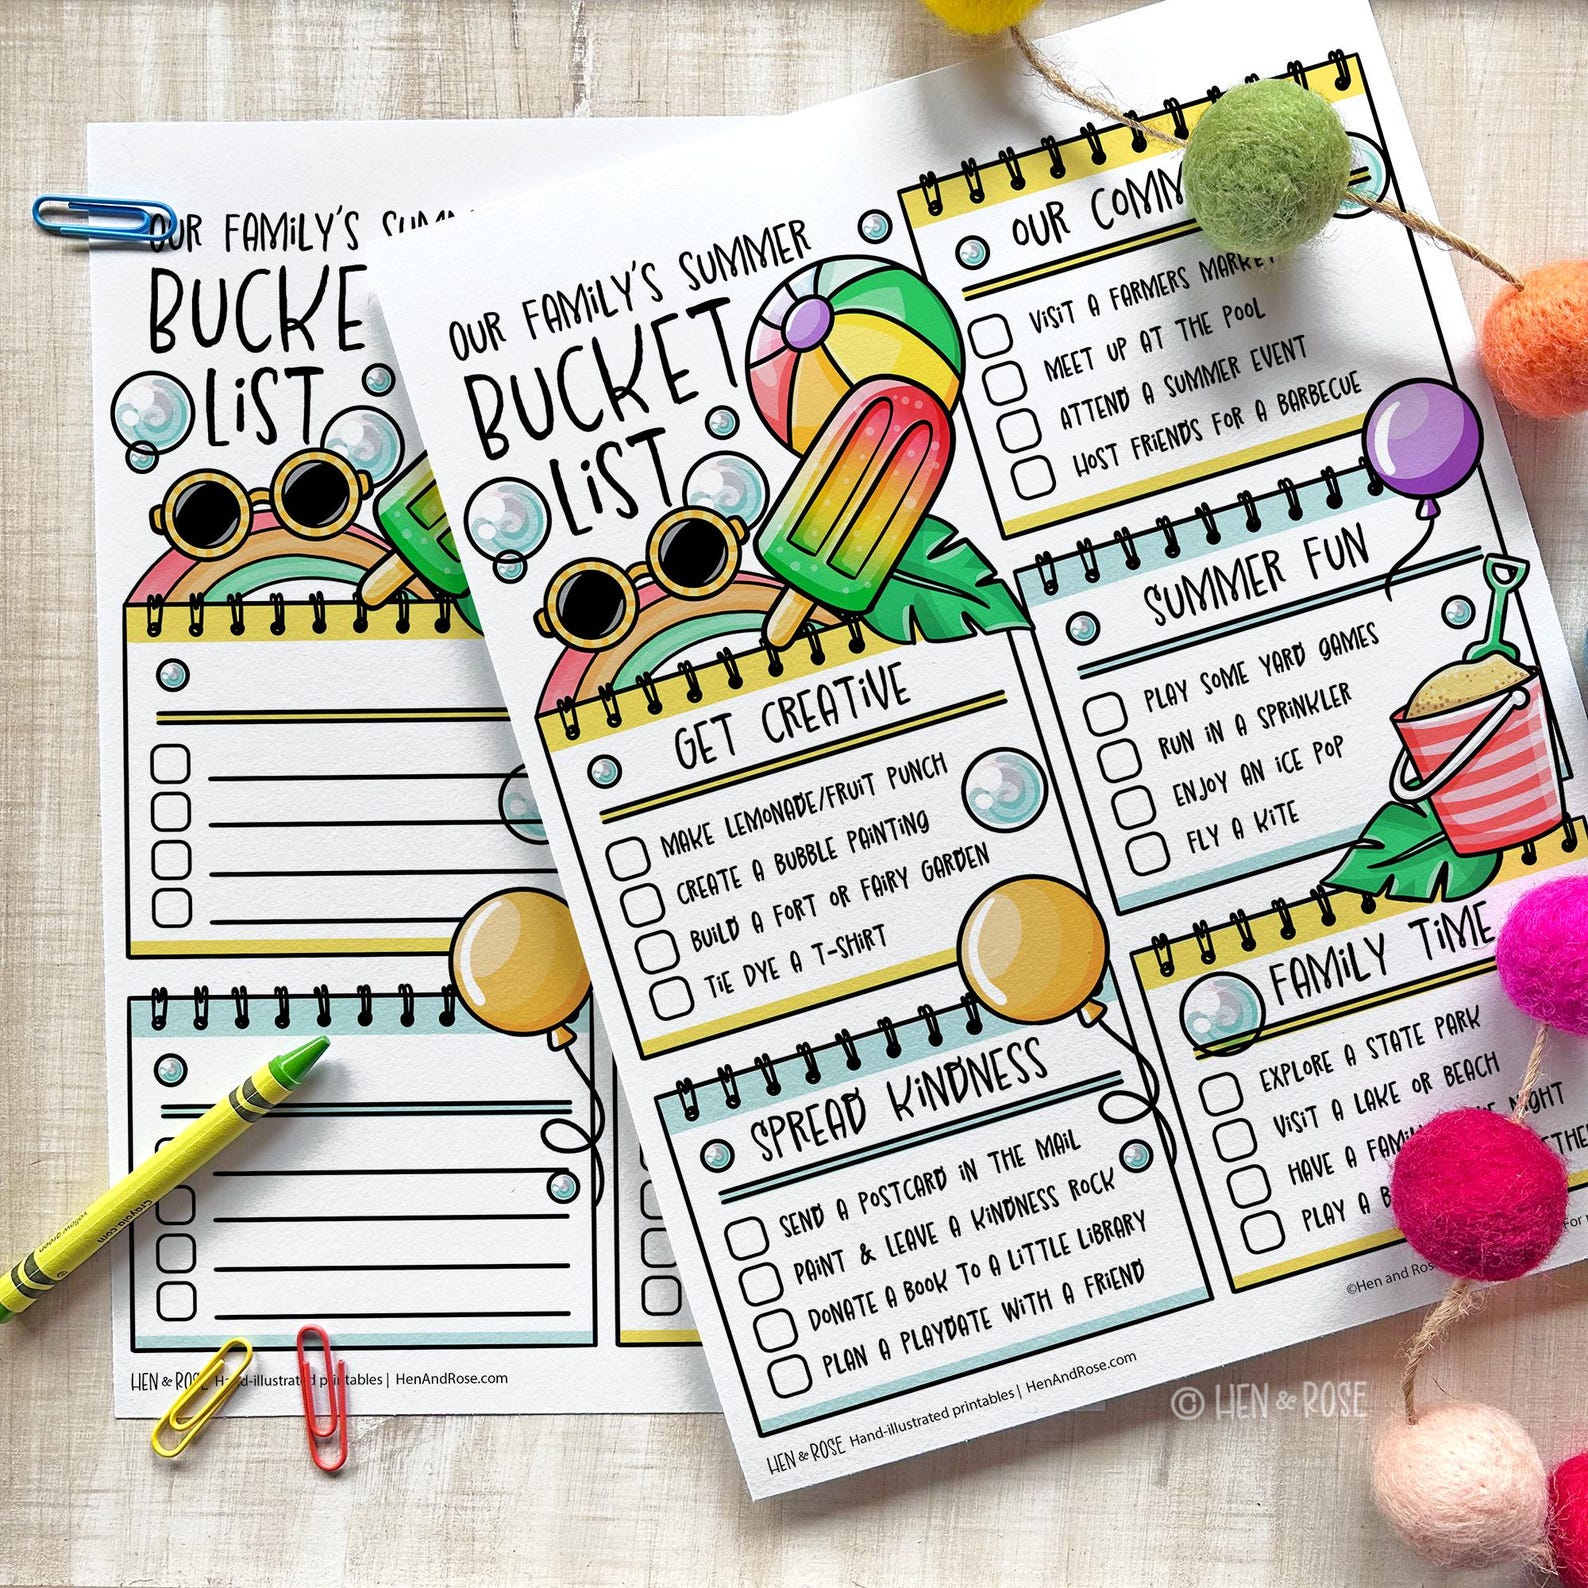 OUR FAMILY'S
BUCKE
LIST
HEN & ROSE Hand-illustrated printables | HenAndRose.com
crayola.com
yellow green
OUR FAMILY'S SUMMER
BUCKET
LIST
GET CREATIVE
MAKE LEMONADE/FRUIT PUNCH
CREATE A BUBBLE PAINTING
BUILD A FORT OR FAIRY GARDEN
TIE DYE A T-SHIRT
SPREAD KINDNESS
SEND A POSTCARD IN THE MAIL
PAINT & LEAVE A KINDNESS ROCK
DONATE A BOOK TO A LITTLE LIBRARY
PLAN A PLAYDATE WITH A FRIEND
OUR COMM
VISIT A FARMERS MARKET
MEET UP AT THE POOL
ATTEND A SUMMER EVENT
HOST FRIENDS FOR A BARBECUE
SUMMER FUN
PLAY SOME YARD GAMES
RUN IN A SPRINKLER
ENJOY AN ICE POP
FLY A KITE
FAMILY TIME
EXPLORE A STATE PARK
VISIT A LAKE OR BEACH
HAVE A FAMI NIGHT
PLAY A
HEN & ROSE Hand-illustrated printables | HenAndRose.com
©Hen and Rose
© HEN & ROSE